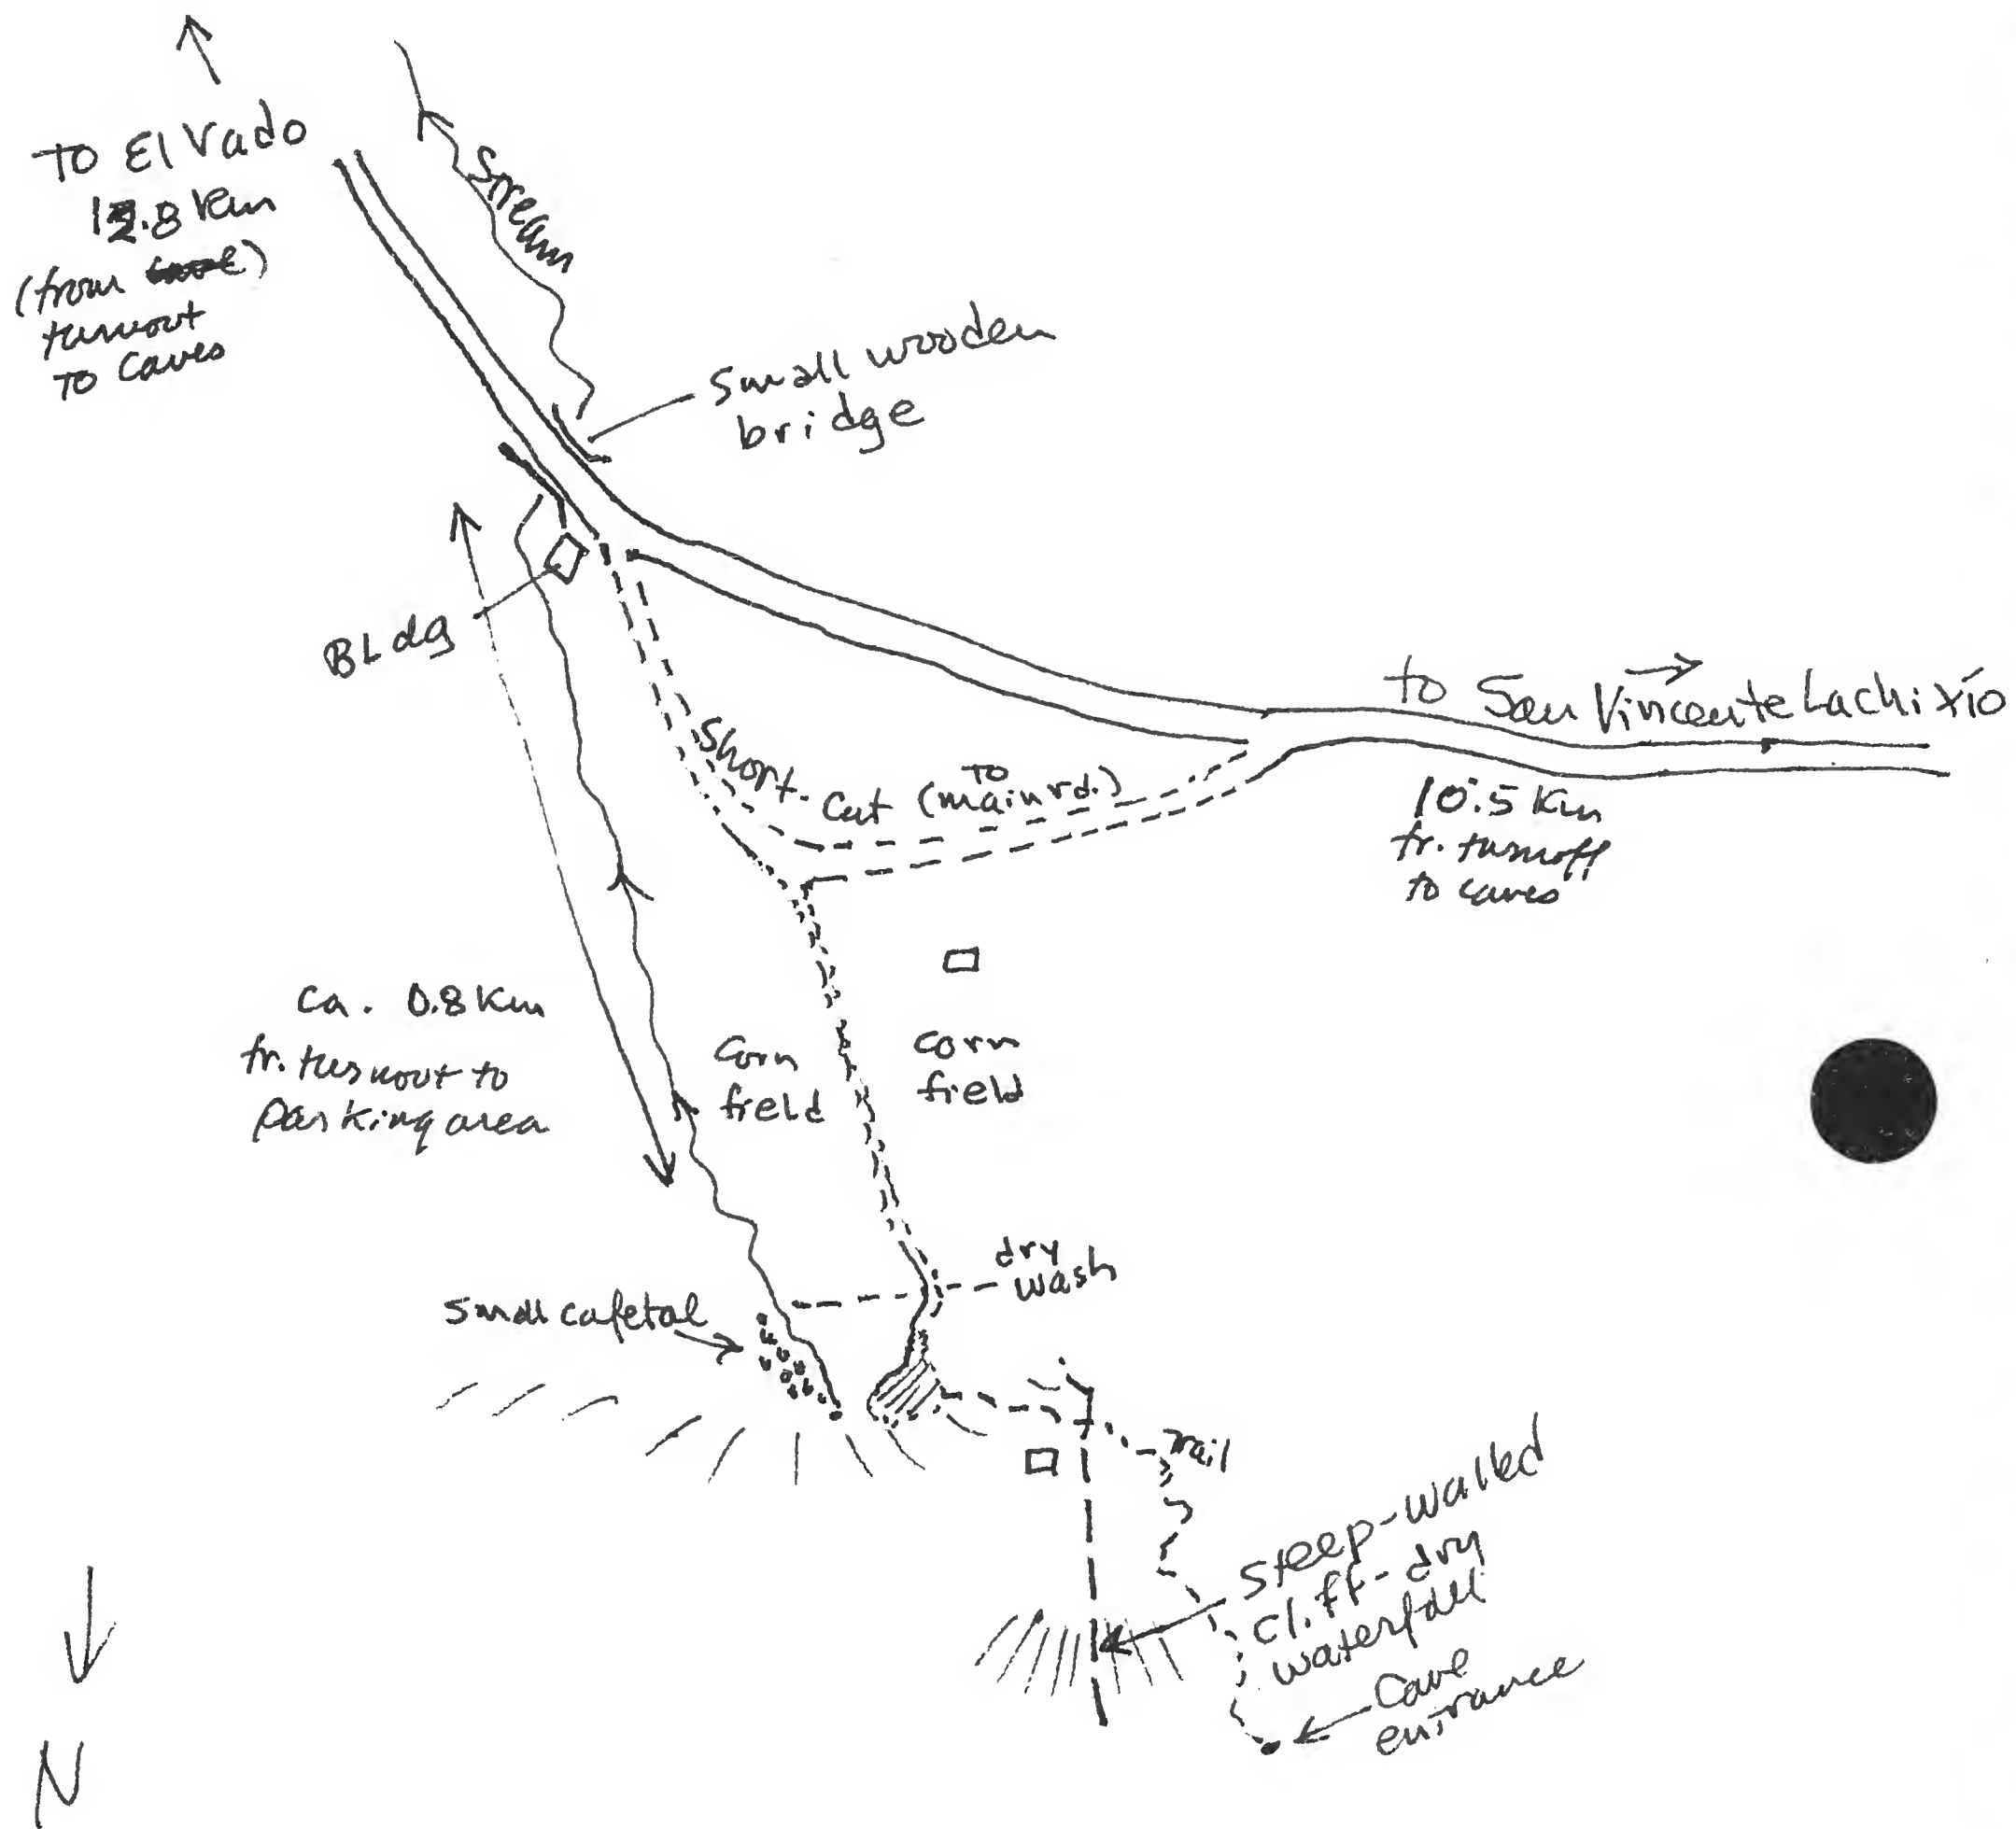 TO El Vado
12.8 km
(from cave)
turnout
TO Caves
Stream
Small wooden
bridge
BLdg
to San Vincente Lachixío
10.5 Km
fr. turnoff
to caves
Short-Cut (TO main rd.)
ca. 0.8 Km
fr. turnout to
parking area
Corn
field
Corn
field
dry
wash
small cafetal
Trail
Steep-walled
cliff-dry
waterfall
Cave
entrance
N